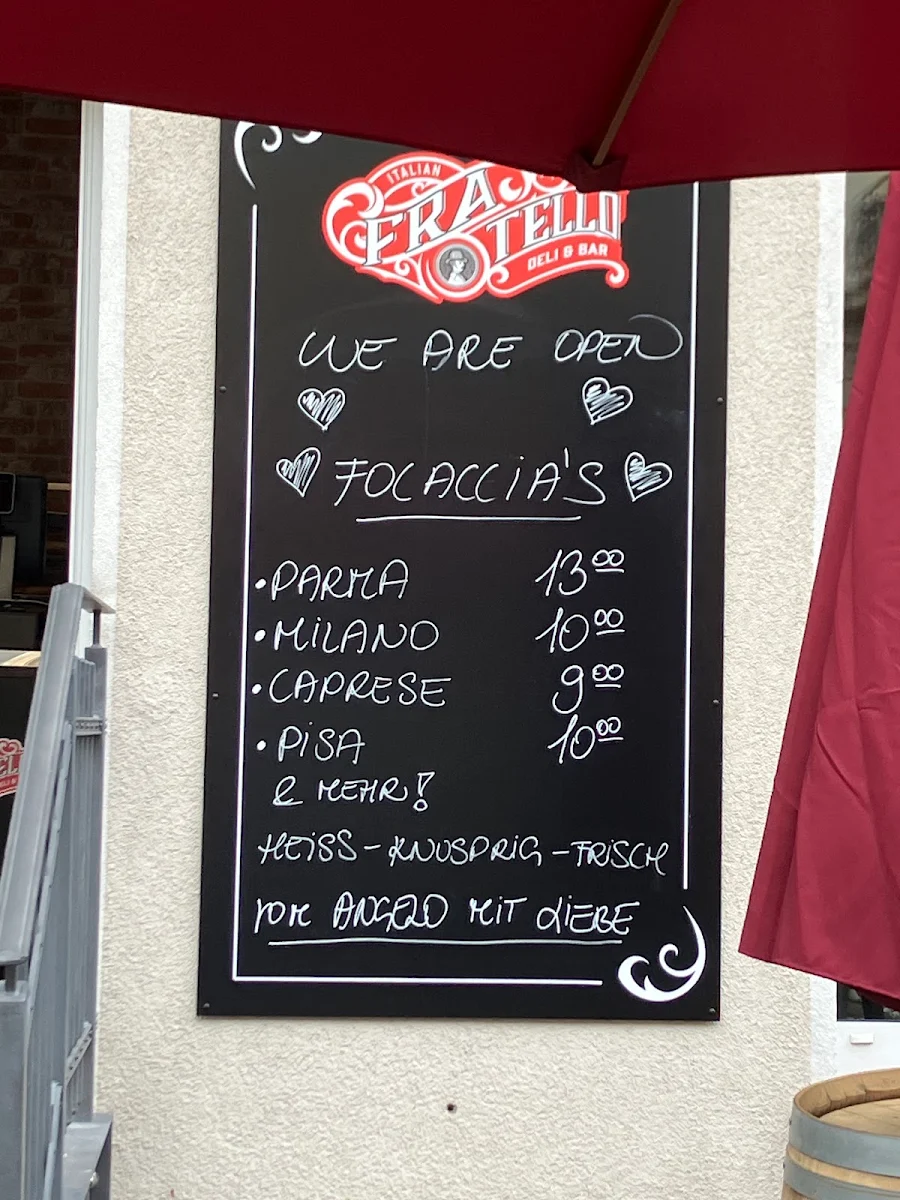 ITALIAN
FRA
TELLO
DELI & BAR
WE ARE OPEN
FOCACCIA'S
• PARMA 13 00
• MILANO 10 00
• CAPRESE 9 00
• PISA 10 00
& MEHR!
HEISS - KNUSPRIG - FRISCH
VOM ANGELO MIT LIEBE